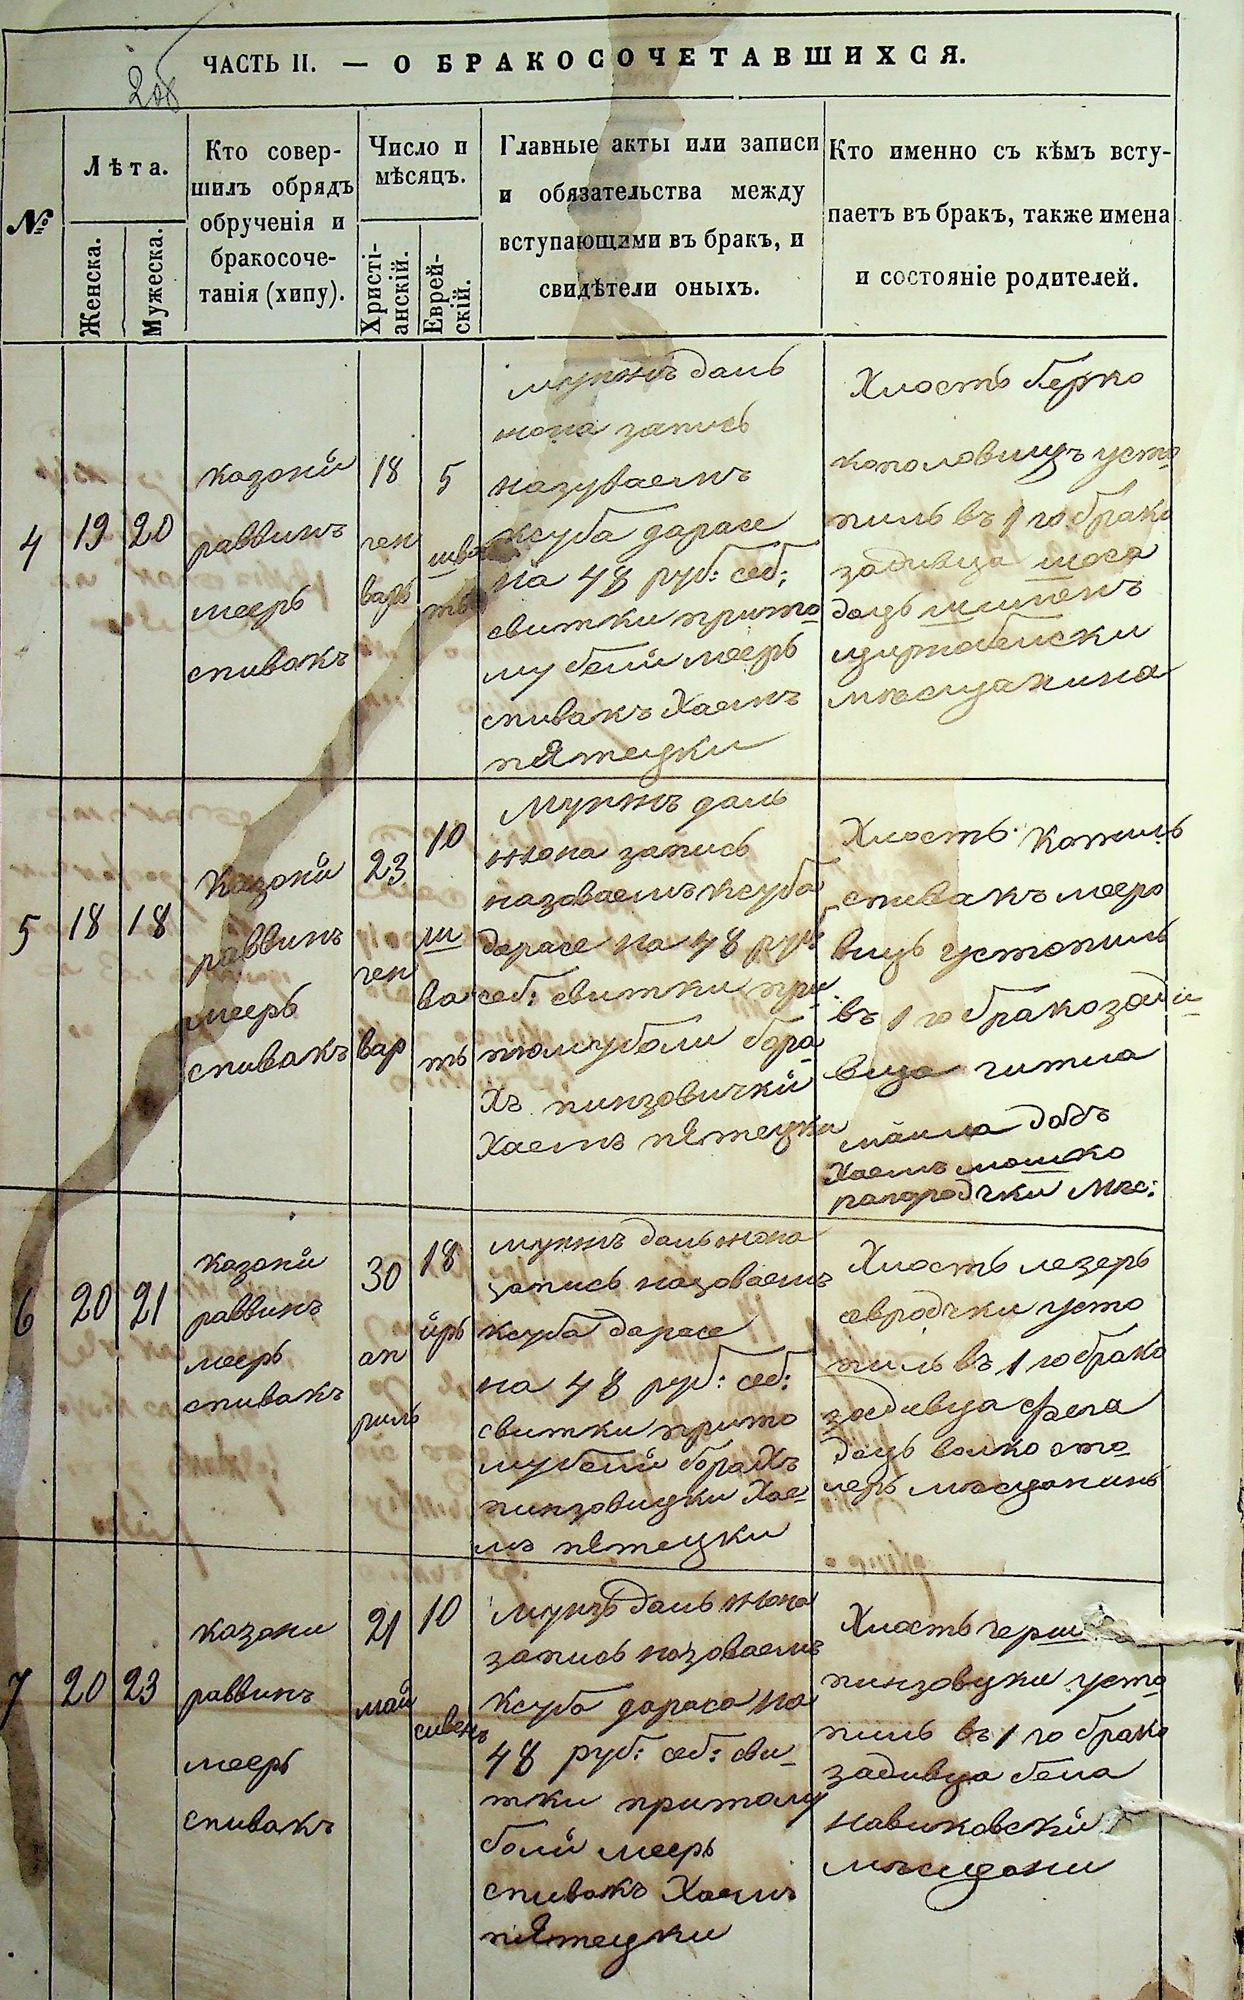 ЧАСТЬ II. — О БРАКОСОЧЕТАВШИХСЯ.
№
Лѣта.
Женска.
Мужеска.
Кто совер-
шилъ обрядъ
обрученія и
бракосоче-
танія (хипу).
Число и
мѣсяцъ.
Христі-
анскій.
Еврей-
скій.
Главные акты или записи
и обязательства между
вступающими въ бракъ, и
свидѣтели оныхъ.
Кто именно съ кѣмъ всту-
паетъ въ бракъ, также имена
и состояніе родителей.
4
19
20
казони
раввинъ
меерь
спивакъ
18
ген
варь
5
шва
тъ
мужъ даль
жона запись
назуваемъ
ксуба дарасе
на 48 руб: себ:
свитки прито
му боли меерь
спивакъ Хаемъ
пятецки
Хлость берко
усто
пиль въ 1 го брака
задивца
доць
мѣсщанина
5
18
18
Казони
раввинъ
меерь
спивакъ
23
ген
вар
10
ш
ва
тъ
Мужъ даль
жона запись
назоваемъ ксуба
дарасе на 48 руб
себ: свитки при
томуболи бора
хъ пинзовички
Хаемъ пятецки
Хлость
спивакъ мееро
вицъ устопиль
въ 1 го брака зади
вица гитла
Хаемъ мошко
мѣс:
6
20
21
казони
раввинъ
меерь
спивакъ
30
ап
риль
18
iирь
мужъ даль жона
запись назоваемъ
ксуба дарасе
на 48 руб: себ:
свитки прито
муболи борахъ
пинзовицки Хае
мъ пятецки
Хлость лезерь
усто
пиль въ 1 го брака
задивца фега
доць волко сто
леръ мѣсцанинъ
7
20
23
казони
раввинъ
меерь
спивакъ
21
май
10
сивень
мужъ даль жона
запись назоваемъ
ксуба дараса на
48 руб: себ: сви
тки притому
боли меерь
спивакъ Хаемъ
пятецки
Хлость герш
пинзовцки усто
пиль въ 1 го брака
задивца бела
навиковски
мѣсцани